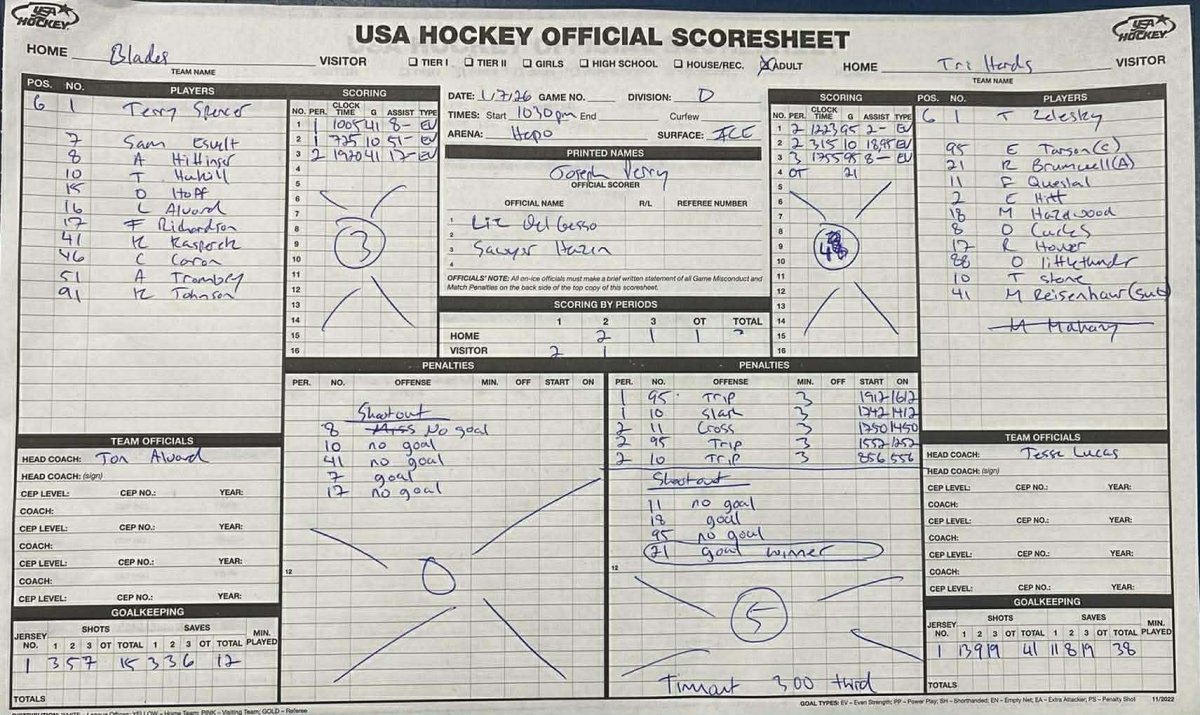 USA HOCKEY
USA HOCKEY OFFICIAL SCORESHEET
USA HOCKEY
HOME Blades VISITOR
TEAM NAME
☐ TIER I ☐ TIER II ☐ GIRLS ☐ HIGH SCHOOL ☐ HOUSE/REC. ☒ ADULT
HOME Tri Hards VISITOR
TEAM NAME
POS. NO. PLAYERS
G 1 Terry Spencer
7 Sam
8 A Hittinger
10 T
15 D Hoff
16 L Alvord
17 F Richardson
41 K
46 C Caron
51 A Trombley
91 K Johnson
SCORING
NO. PER. CLOCK TIME G ASSIST TYPE
1 1 1005 41 8- EV
2 1 725 10 51- EV
3 2 1920 41 17- EV
4
5
6
7
8
9
10
11
12
13
14
15
16
3
DATE: 1/7/26 GAME NO. DIVISION: D
TIMES: Start 1030pm End Curfew
ARENA: Hapo SURFACE: ICE
PRINTED NAMES
Joseph Perry
OFFICIAL SCORER
OFFICIAL NAME R/L REFEREE NUMBER
1 Liz DelGesso
2
3 Sawyer Hazen
4
OFFICIALS' NOTE: All on-ice officials must make a brief written statement of all Game Misconduct and
Match Penalties on the back side of the top copy of this scoresheet.
SCORING BY PERIODS
1 2 3 OT TOTAL
HOME 2 1 1
VISITOR 2 1
SCORING
NO. PER. CLOCK TIME G ASSIST TYPE
1 2 1223 95 2- EV
2 2 315 10 18 95 EV
3 3 1755 95 8- EV
4 OT 21
5
6
7
8
9
10
11
12
13
14
15
16
4
POS. NO. PLAYERS
G 1 T Zelesky
95 E Tarson(C)
21 R Brumwell(A)
11 F Questal
2 E Hitt
18 M Hazlwood
8 O Curles
17 R Hover
88 O littlethunder
10 T Stone
41 M Reisenhaur(sub)
M Mahany
PENALTIES
PER. NO. OFFENSE MIN. OFF START ON
Shootout
8 Miss No goal
10 no goal
41 no goal
7 goal
17 no goal
12
0
PENALTIES
PER. NO. OFFENSE MIN. OFF START ON
1 95 Trip 3 1912 1612
1 10 Slash 3 1742 1412
2 11 Cross 3 1750 1450
2 95 Trip 3 1552 1252
2 10 Trip 3 856 556
Shootout
11 no goal
18 goal
95 no goal
21 goal winner
12
5
Timeout 300 third
TEAM OFFICIALS
HEAD COACH: Jon Alvord
HEAD COACH: (sign)
CEP LEVEL: CEP NO.: YEAR:
COACH:
CEP LEVEL: CEP NO.: YEAR:
COACH:
CEP LEVEL: CEP NO.: YEAR:
COACH:
CEP LEVEL: CEP NO.: YEAR:
GOALKEEPING
JERSEY NO. SHOTS 1 2 3 OT TOTAL SAVES 1 2 3 OT TOTAL MIN. PLAYED
1 3 5 7 15 3 3 6 12
TOTALS
TEAM OFFICIALS
HEAD COACH: Jesse Lucas
HEAD COACH: (sign)
CEP LEVEL: CEP NO.: YEAR:
COACH:
CEP LEVEL: CEP NO.: YEAR:
COACH:
CEP LEVEL: CEP NO.: YEAR:
COACH:
CEP LEVEL: CEP NO.: YEAR:
GOALKEEPING
JERSEY NO. SHOTS 1 2 3 OT TOTAL SAVES 1 2 3 OT TOTAL MIN. PLAYED
1 13 9 19 41 11 8 19 38
TOTALS
DISTRIBUTION: WHITE - League Offices; YELLOW - Home Team; PINK - Visiting Team; GOLD - Referee
GOAL TYPES: EV – Even Strength; PP – Power Play; SH – Shorthanded; EN – Empty Net; EA – Extra Attacker; PS – Penalty Shot 11/2022